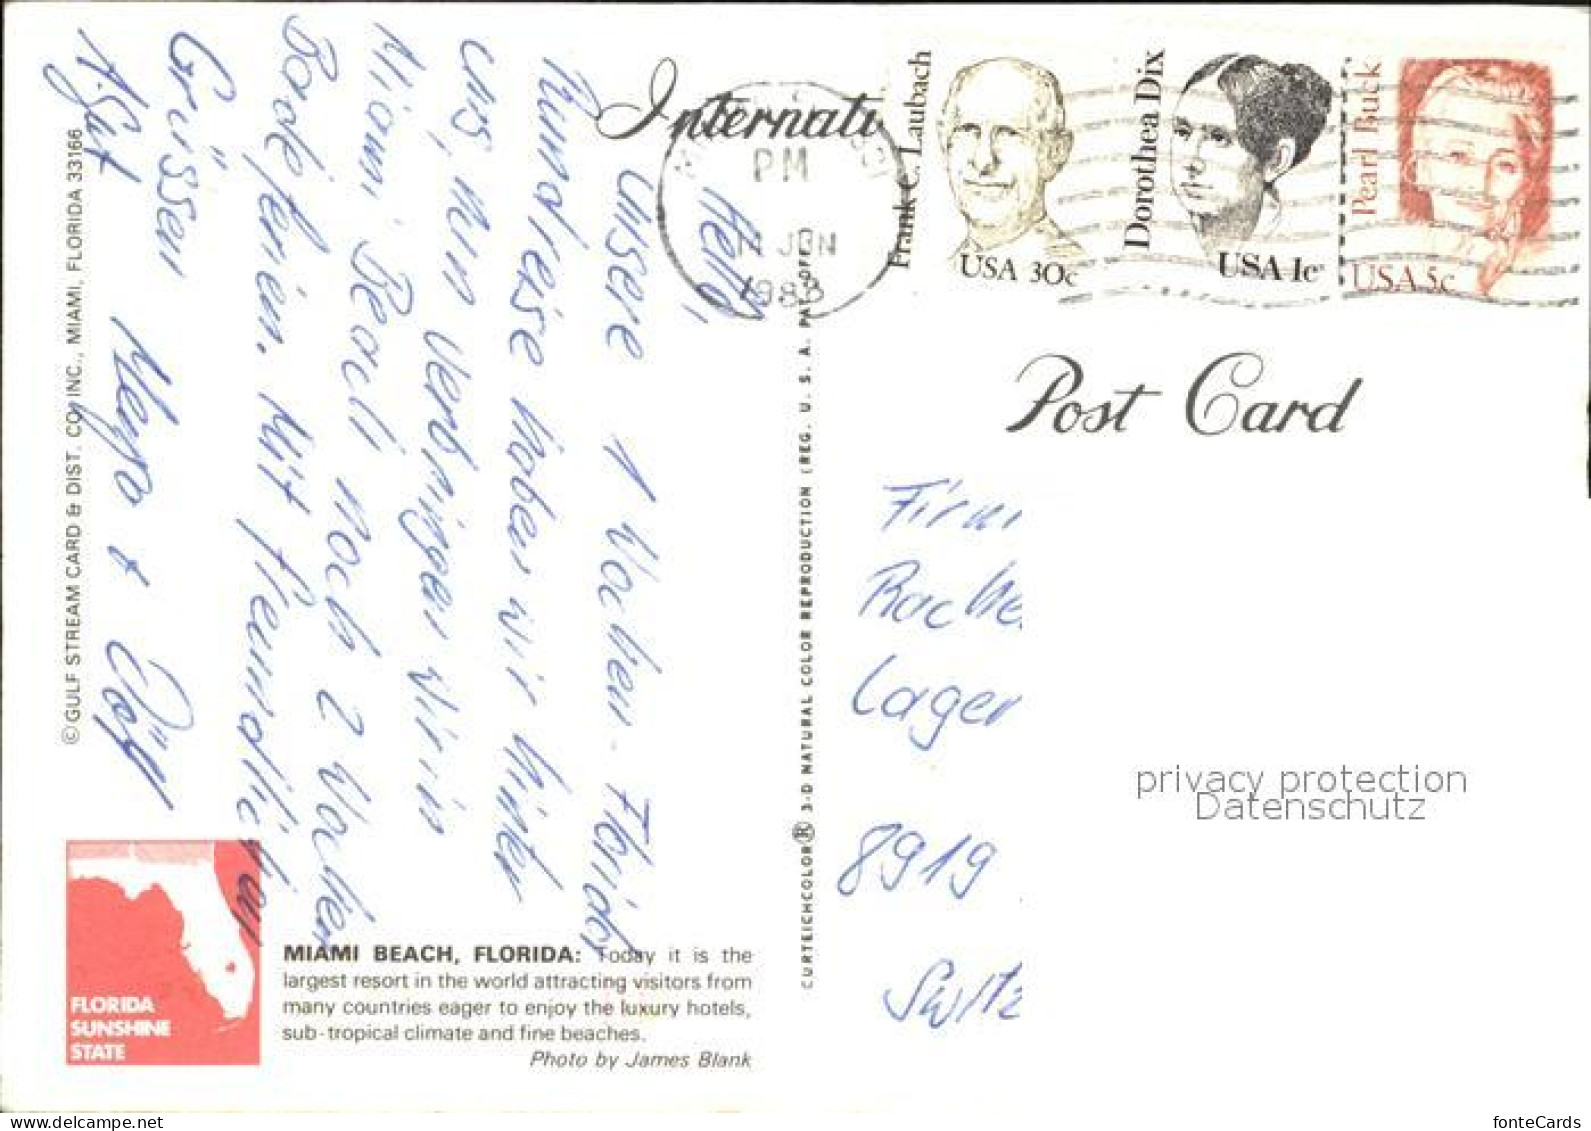 Internati
PM
14 JUN
1988
Frank C. Laubach
USA 30c
Dorothea Dix
USA 1c
Pearl Buck
USA 5c
Post Card
Hello,
unsere 1 Wochen-Florida
Rundreise haben wir hinter
uns, nun verbringen wir in
Miami Beach noch 2 Wochen
Badeferien. Mit freundlichen
Grüssen
Lager
8919
Switz
privacy protection
Datenschutz
© GULF STREAM CARD & DIST. CO. INC., MIAMI, FLORIDA 33166
CURTEICHCOLOR® 3-D NATURAL COLOR REPRODUCTION (REG. U. S. A. PAT. OFF.)
FLORIDA
SUNSHINE
STATE
MIAMI BEACH, FLORIDA: Today it is the
largest resort in the world attracting visitors from
many countries eager to enjoy the luxury hotels,
sub-tropical climate and fine beaches.
Photo by James Blank
fonteCards